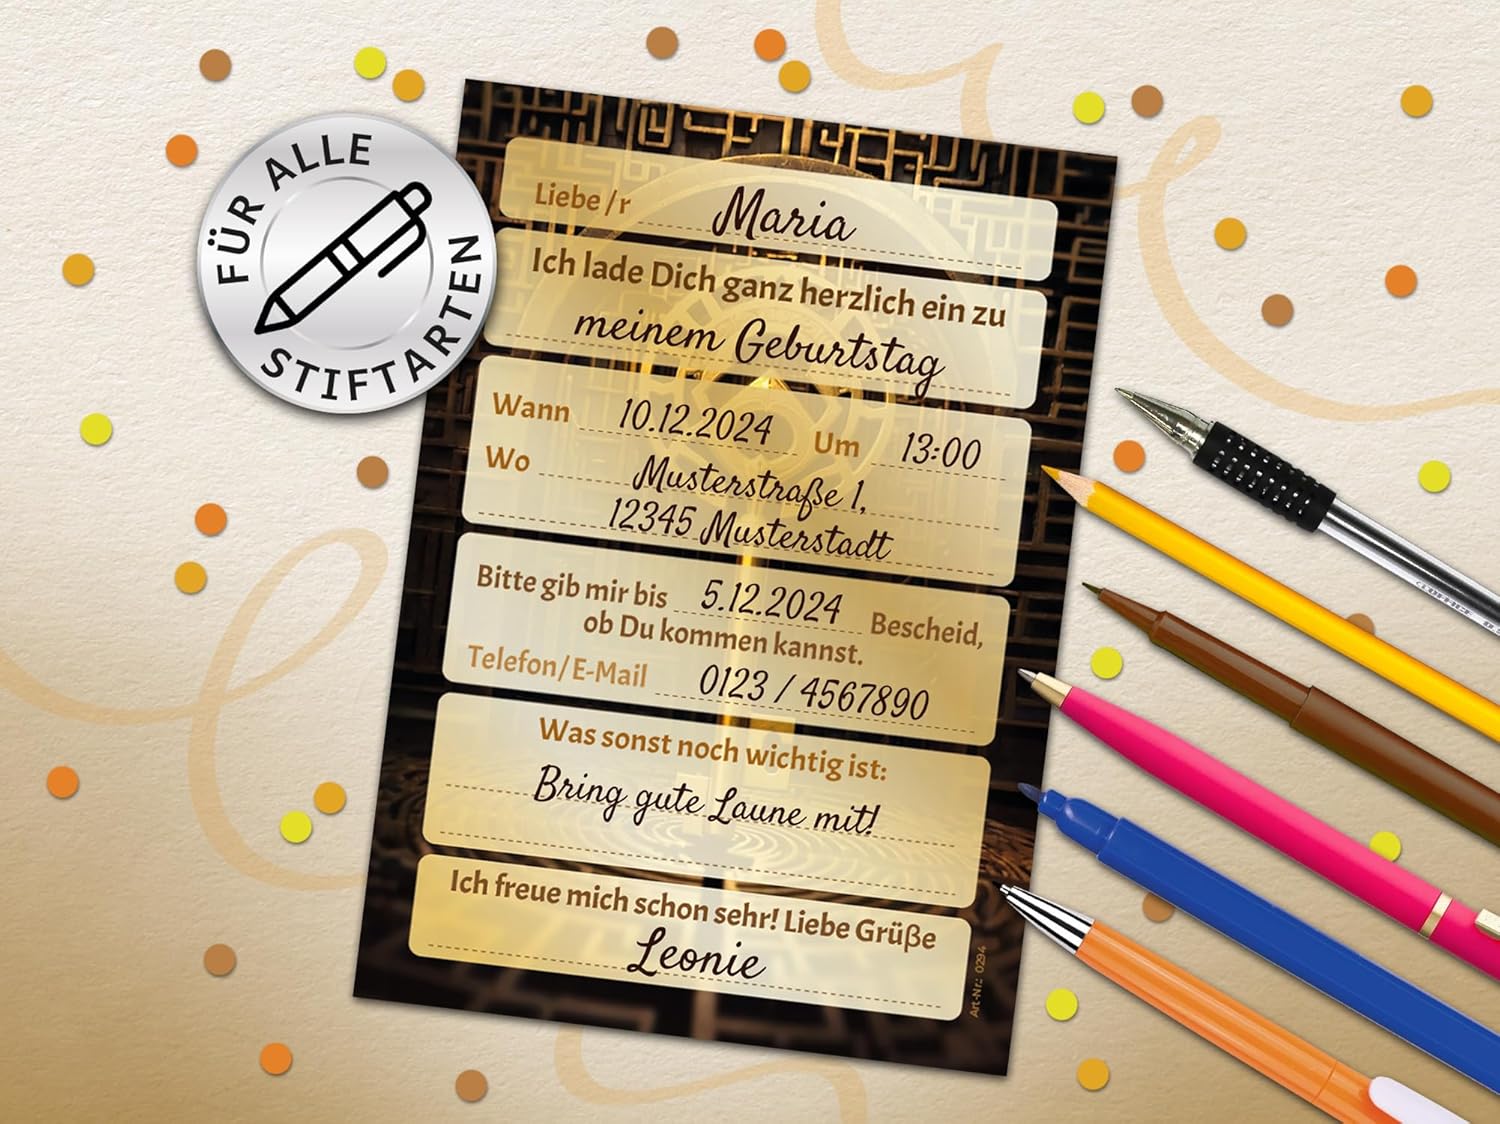 FÜR ALLE
STIFTARTEN
Liebe/r Maria
Ich lade Dich ganz herzlich ein zu
meinem Geburtstag
Wann 10.12.2024 Um 13:00
Wo Musterstraße 1,
12345 Musterstadt
Bitte gib mir bis 5.12.2024 Bescheid,
ob Du kommen kannst.
Telefon/E-Mail 0123 / 4567890
Was sonst noch wichtig ist:
Bring gute Laune mit!
Ich freue mich schon sehr! Liebe Grüße
Leonie
Art-Nr.: 0294